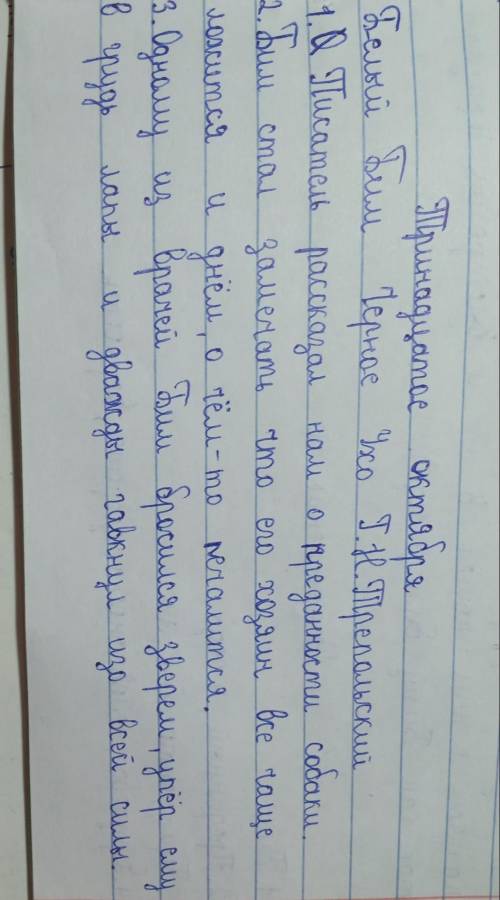 Тринадцатое октября
Белый Бим Черное Ухо Г.Н.Трепольский
1. Писатель рассказал нам о преданности собаки.
2. Бим стал замечать что его хозяин все чаще
ложится и днём, о чём-то печалится.
3. Одному из врачей Бим бросился зверем, упёр ему
в грудь лапы и дважды гавкнул изо всей силы.